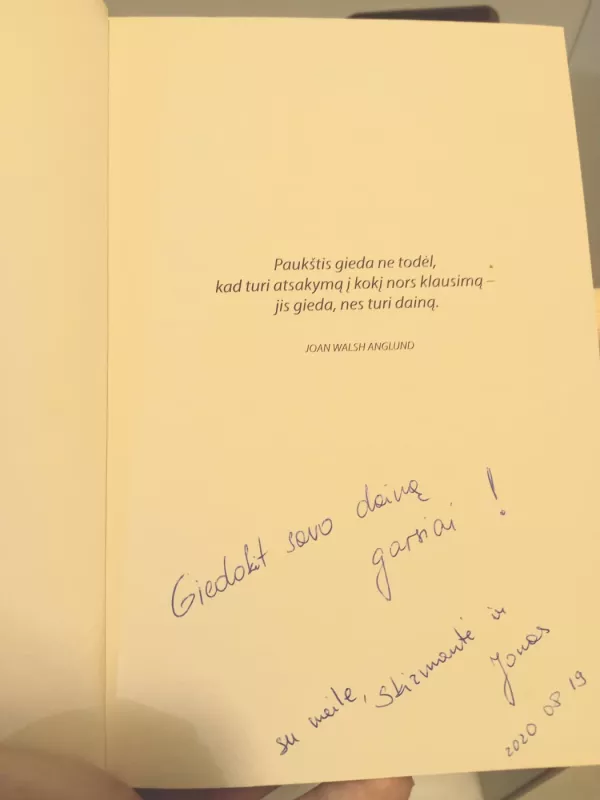 Paukštis gieda ne todėl,
kad turi atsakymą į kokį nors klausimą –
jis gieda, nes turi dainą.
JOAN WALSH ANGLUND
Giedokit savo dainą
garsiai !
su meile, Skirmantė ir
Jonas
2020 08 19